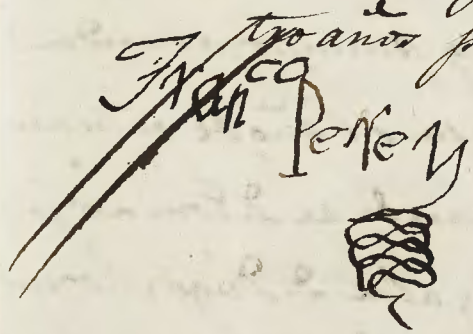 tro años
Fran.co Perez